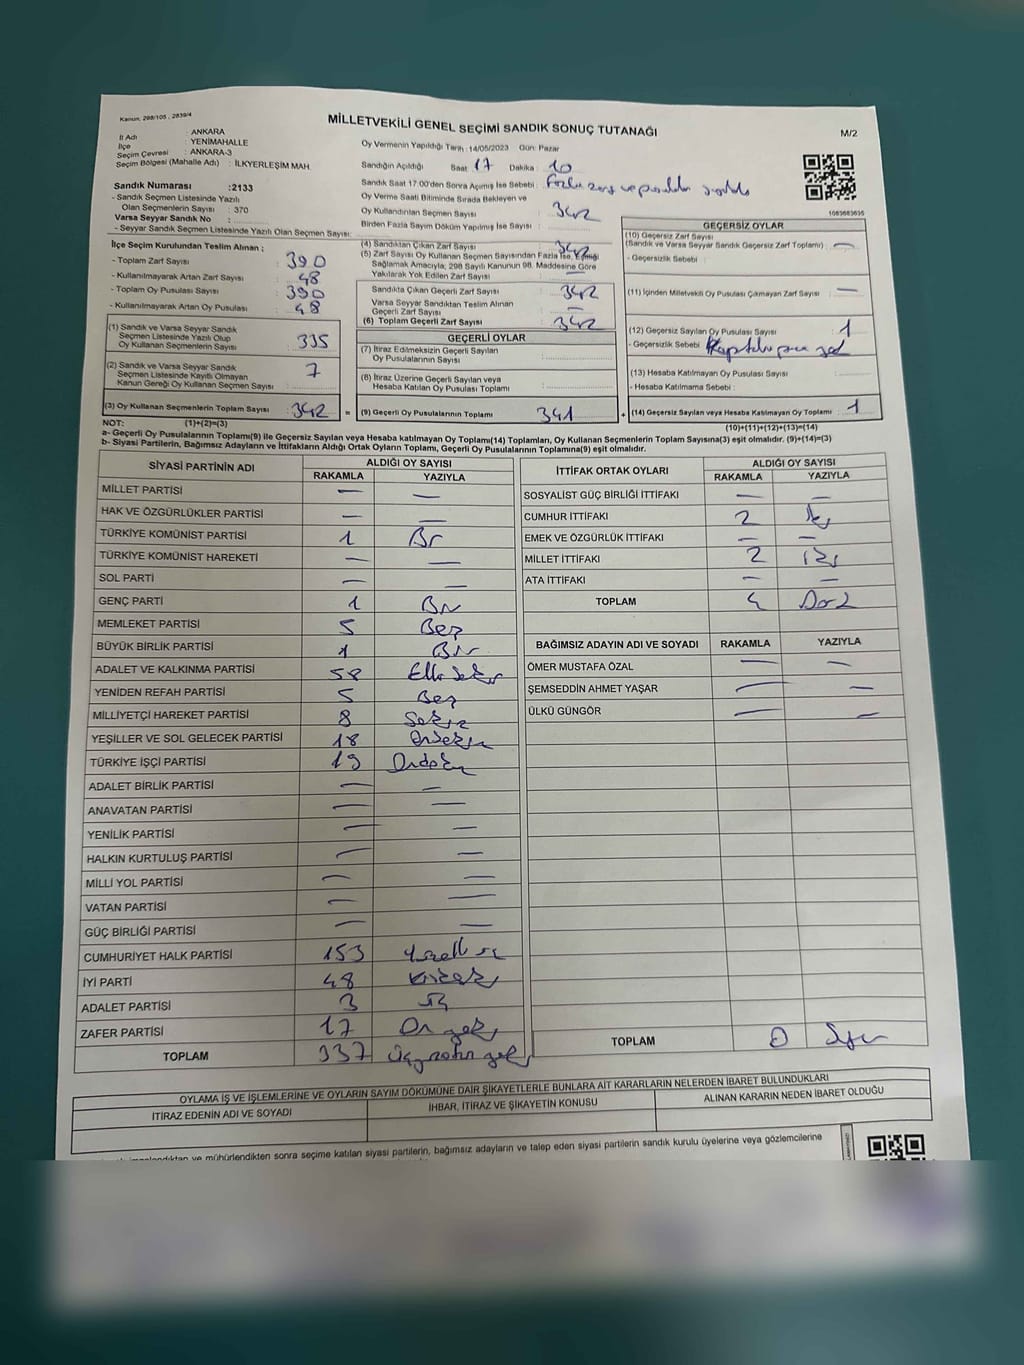 Kanun, 298/105, 2839/4
MİLLETVEKİLİ GENEL SEÇİMİ SANDIK SONUÇ TUTANAĞI
M/2
İl Adı : ANKARA
İlçe : YENİMAHALLE
Seçim Çevresi : ANKARA-3
Seçim Bölgesi (Mahalle Adı) : İLKYERLEŞİM MAH.
Oy Vermenin Yapıldığı Tarih : 14/05/2023 Gün: Pazar
Sandığın Açıldığı Saat 17 Dakika 10
Sandık Saat 17:00'den Sonra Açımış İse Sebebi :
Oy Verme Saati Bitiminde Sırada Bekleyen ve
Oy Kullandırılan Seçmen Sayısı 342
Birden Fazla Sayım Döküm Yapılmış İse Sayısı :
Sandık Numarası :2133
- Sandık Seçmen Listesinde Yazılı
Olan Seçmenlerin Sayısı : 370
Varsa Seyyar Sandık No :
- Seyyar Sandık Seçmen Listesinde Yazılı Olan Seçmen Sayısı:
İlçe Seçim Kurulundan Teslim Alınan ;
- Toplam Zarf Sayısı : 390
- Kullanılmayarak Artan Zarf Sayısı : 48
- Toplam Oy Pusulası Sayısı : 390
- Kullanılmayarak Artan Oy Pusulası : 48
(1) Sandık ve Varsa Seyyar Sandık
Seçmen Listesinde Yazılı Olup
Oy Kullanan Seçmenlerin Sayısı : 335
(2) Sandık ve Varsa Seyyar Sandık
Seçmen Listesinde Kayıtlı Olmayan
Kanun Gereği Oy Kullanan Seçmen Sayısı : 7
(3) Oy Kullanan Seçmenlerin Toplam Sayısı : 342
(4) Sandıktan Çıkan Zarf Sayısı : 342
(5) Zarf Sayısı Oy Kullanan Seçmen Sayısından Fazla İse, Eşitliği
Sağlamak Amacıyla, 298 Sayılı Kanunun 98. Maddesine Göre
Yakılarak Yok Edilen Zarf Sayısı : —
Sandıkta Çıkan Geçerli Zarf Sayısı : 342
Varsa Seyyar Sandıktan Teslim Alınan
Geçerli Zarf Sayısı : —
(6) Toplam Geçerli Zarf Sayısı : 342
GEÇERLİ OYLAR
(7) İtiraz Edilmeksizin Geçerli Sayılan
Oy Pusulalarının Sayısı :
(8) İtiraz Üzerine Geçerli Sayılan veya
Hesaba Katılan Oy Pusulası Toplamı :
= (9) Geçerli Oy Pusulalarının Toplamı : 341
1085683635
GEÇERSİZ OYLAR
(10) Geçersiz Zarf Sayısı
(Sandık ve Varsa Seyyar Sandık Geçersiz Zarf Toplamı) : —
- Geçersizlik Sebebi :
(11) İçinden Milletvekili Oy Pusulası Çıkmayan Zarf Sayısı : —
(12) Geçersiz Sayılan Oy Pusulası Sayısı : 1
- Geçersizlik Sebebi :
(13) Hesaba Katılmayan Oy Pusulası Sayısı :
- Hesaba Katılmama Sebebi :
+ (14) Geçersiz Sayılan veya Hesaba Katılmayan Oy Toplamı : 1
NOT: (1)+(2)=(3)
(10)+(11)+(12)+(13)=(14)
a- Geçerli Oy Pusulalarının Toplamı(9) ile Geçersiz Sayılan veya Hesaba katılmayan Oy Toplamı(14) Toplamları, Oy Kullanan Seçmenlerin Toplam Sayısına(3) eşit olmalıdır. (9)+(14)=(3)
b- Siyasi Partilerin, Bağımsız Adayların ve İttifakların Aldığı Ortak Oyların Toplamı, Geçerli Oy Pusulalarının Toplamına(9) eşit olmalıdır.
SİYASİ PARTİNİN ADI ALDIĞI OY SAYISI
RAKAMLA YAZIYLA
MİLLET PARTİSİ — —
HAK VE ÖZGÜRLÜKLER PARTİSİ — —
TÜRKİYE KOMÜNİST PARTİSİ 1 Bir
TÜRKİYE KOMÜNİST HAREKETİ — —
SOL PARTİ — —
GENÇ PARTİ 1 Bir
MEMLEKET PARTİSİ 5 Beş
BÜYÜK BİRLİK PARTİSİ 1 Bir
ADALET VE KALKINMA PARTİSİ 58 Elli Sekiz
YENİDEN REFAH PARTİSİ 5 Beş
MİLLİYETÇİ HAREKET PARTİSİ 8 Sekiz
YEŞİLLER VE SOL GELECEK PARTİSİ 18 Onsekiz
TÜRKİYE İŞÇİ PARTİSİ 19 Ondokuz
ADALET BİRLİK PARTİSİ — —
ANAVATAN PARTİSİ — —
YENİLİK PARTİSİ — —
HALKIN KURTULUŞ PARTİSİ — —
MİLLİ YOL PARTİSİ — —
VATAN PARTİSİ — —
GÜÇ BİRLİĞİ PARTİSİ — —
CUMHURİYET HALK PARTİSİ 153
İYİ PARTİ 48
ADALET PARTİSİ 3 Üç
ZAFER PARTİSİ 17 On yedi
TOPLAM 337 Üçyüzotuz yedi
İTTİFAK ORTAK OYLARI ALDIĞI OY SAYISI
RAKAMLA YAZIYLA
SOSYALİST GÜÇ BİRLİĞİ İTTİFAKI — —
CUMHUR İTTİFAKI 2 İki
EMEK VE ÖZGÜRLÜK İTTİFAKI — —
MİLLET İTTİFAKI 2 İki
ATA İTTİFAKI — —
TOPLAM 4 Dört
BAĞIMSIZ ADAYIN ADI VE SOYADI RAKAMLA YAZIYLA
ÖMER MUSTAFA ÖZAL — —
ŞEMSEDDİN AHMET YAŞAR — —
ÜLKÜ GÜNGÖR — —
TOPLAM 0 Sıfır
OYLAMA İŞ VE İŞLEMLERİNE VE OYLARIN SAYIM DÖKÜMÜNE DAİR ŞİKAYETLERLE BUNLARA AİT KARARLARIN NELERDEN İBARET BULUNDUKLARI
İTİRAZ EDENİN ADI VE SOYADI
İHBAR, İTİRAZ VE ŞİKAYETİN KONUSU
ALINAN KARARIN NEDEN İBARET OLDUĞU
ve mühürlendikten sonra seçime katılan siyasi partilerin, bağımsız adayların ve talep eden siyasi partilerin sandık kurulu üyelerine veya gözlemcilerine